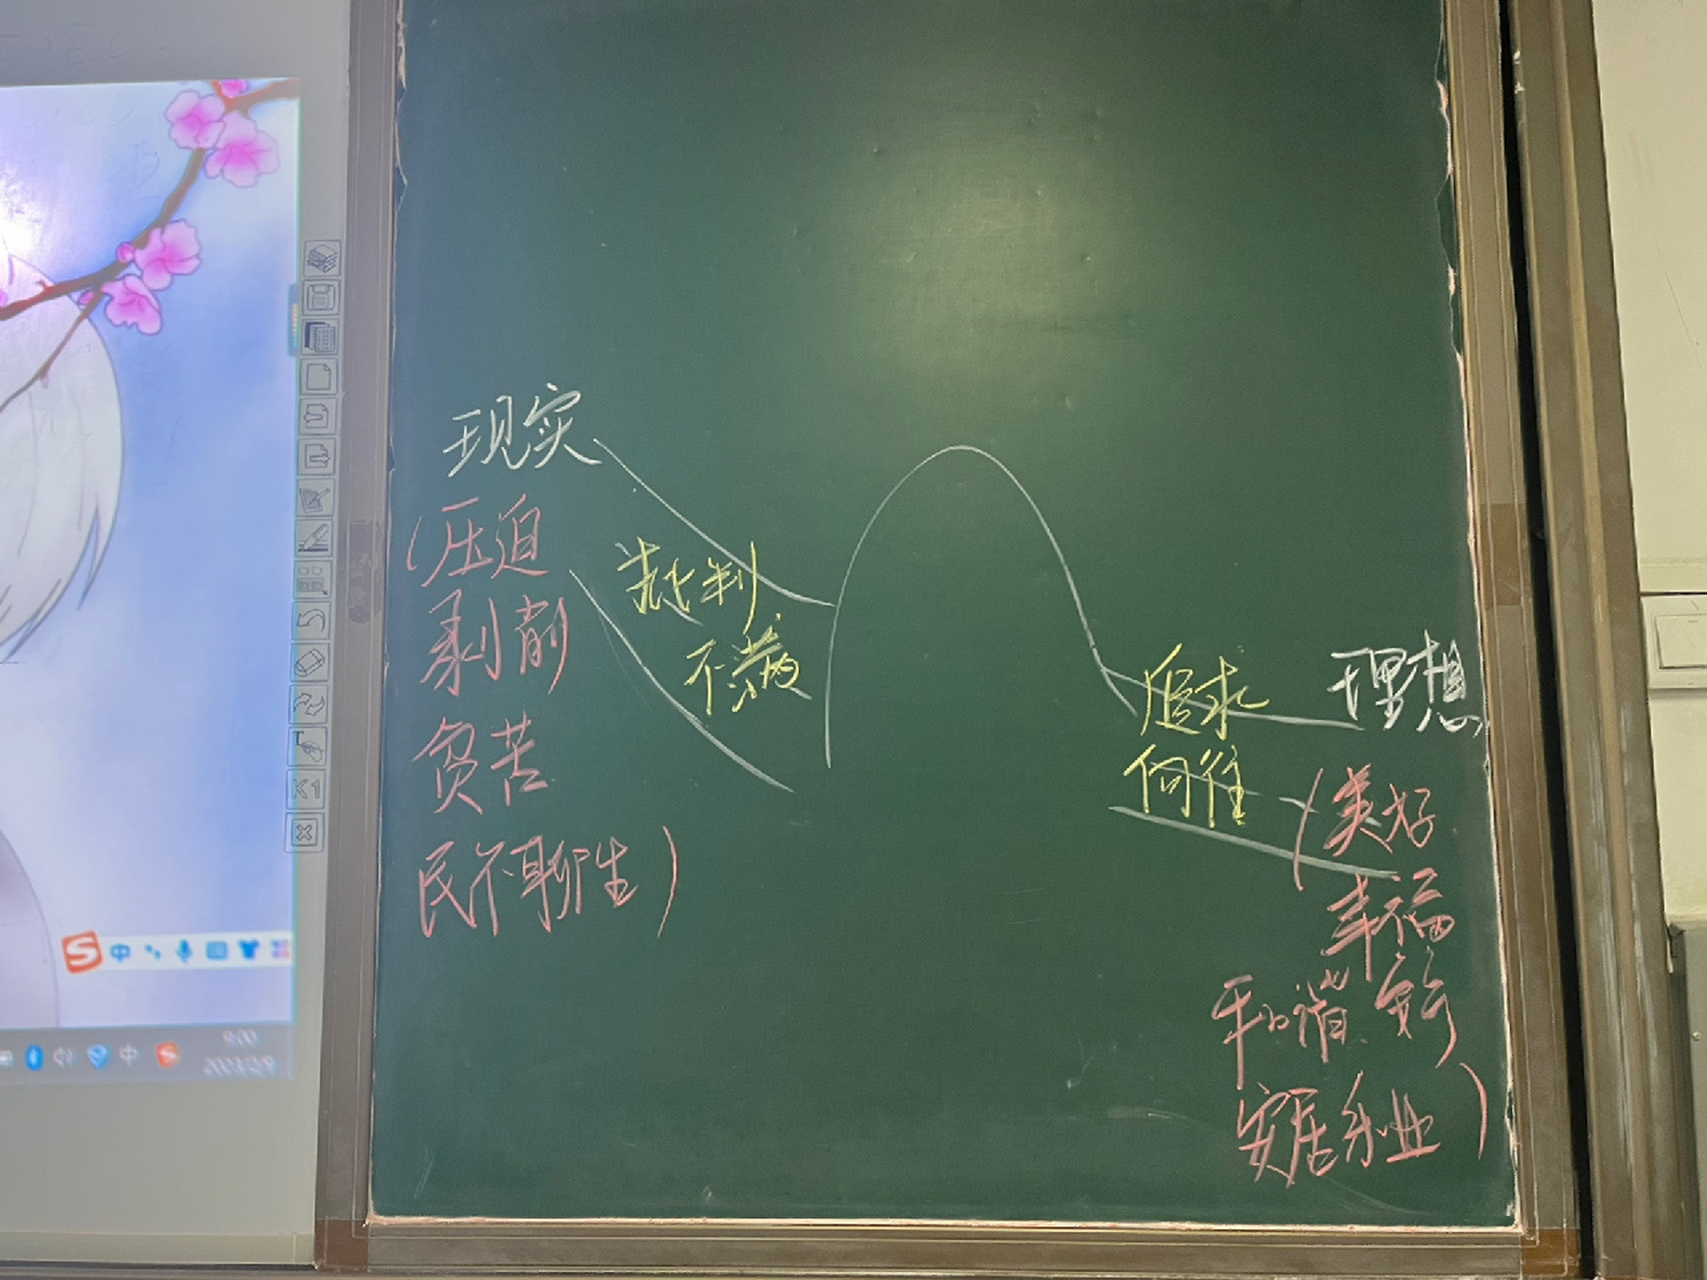 现实
(压迫
剥削
贫苦
民不聊生)
批判
不满
追求
向往
理想
(美好
幸福
和谐 安宁
安居乐业)
K1
T
中
中
9:00
2023/2/9